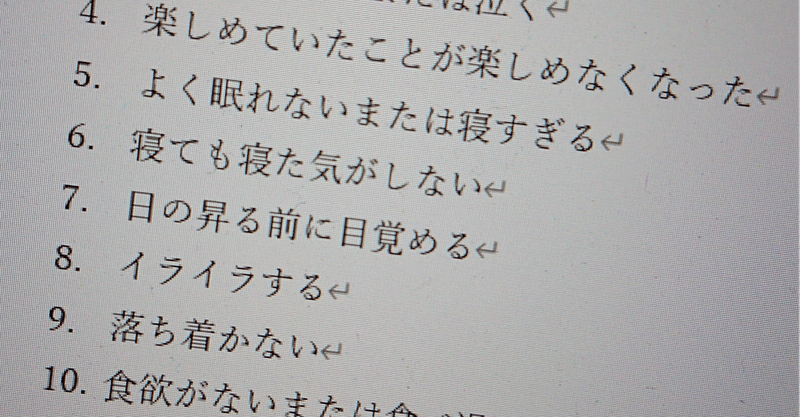 または泣く↵
4. 楽しめていたことが楽しめなくなった↵
5. よく眠れないまたは寝すぎる↵
6. 寝ても寝た気がしない↵
7. 日の昇る前に目覚める↵
8. イライラする↵
9. 落ち着かない↵
10. 食欲がないまたは食べ過